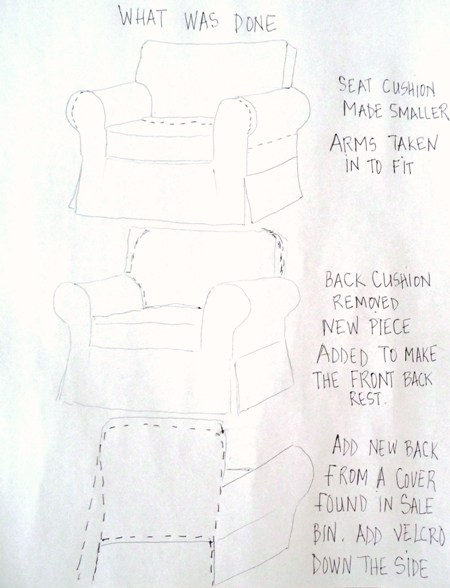 WHAT WAS DONE
SEAT CUSHION
MADE SMALLER
ARMS TAKEN
IN TO FIT
BACK CUSHION
REMOVED
NEW PIECE
ADDED TO MAKE
THE FRONT BACK
REST.
ADD NEW BACK
FROM A COVER
FOUND IN SALE
BIN. ADD VELCRO
DOWN THE SIDE